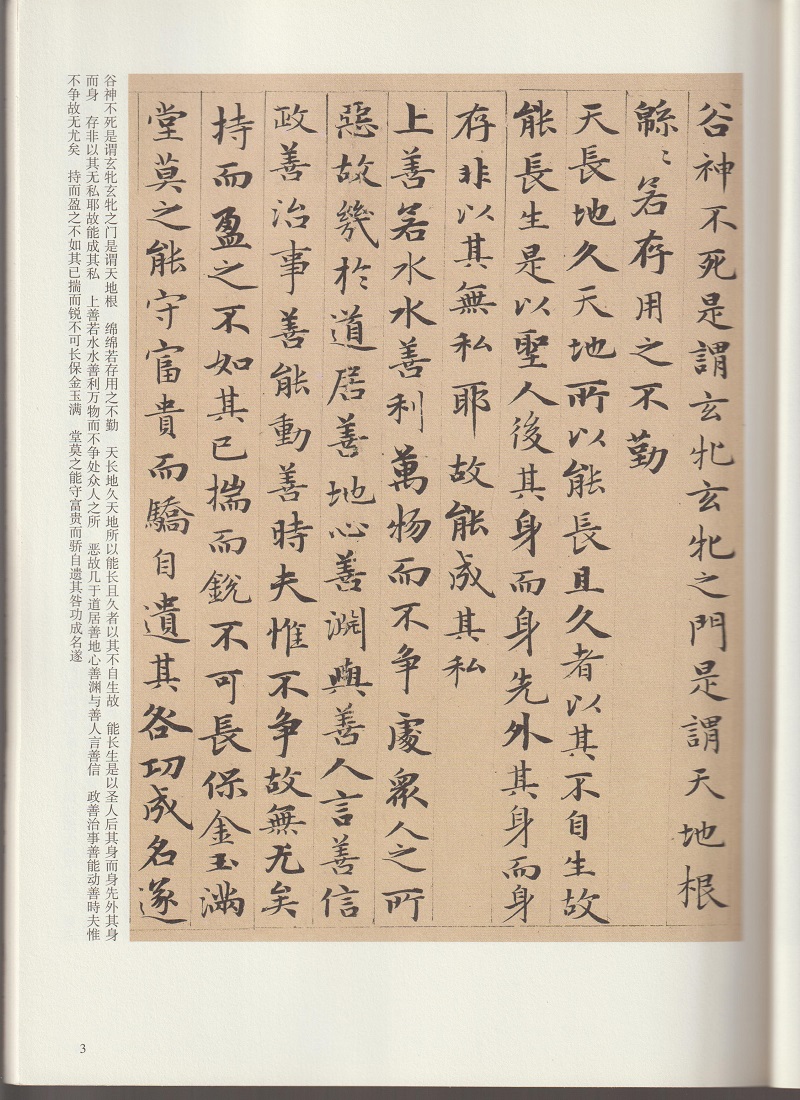 谷神不死是謂玄牝玄牝之門是謂天地根
緜〻若存用之不勤
天長地久天地所以能長且久者以其不自生故
能長生是以聖人後其身而身先外其身而身
存非以其無私耶故能成其私
上善若水水善利萬物而不争處衆人之所
惡故幾於道居善地心善淵與善人言善信
政善治事善能動善時夫惟不争故無尤矣
持而盈之不如其已揣而銳不可長保金玉滿
堂莫之能守富貴而驕自遺其咎功成名遂
谷神不死是谓玄牝玄牝之门是谓天地根　绵绵若存用之不勤　天长地久天地所以能长且久者以其不自生故　能长生是以圣人后其身而身先外其身
而身　存非以其无私耶故能成其私　上善若水水善利万物而不争处众人之所　恶故几于道居善地心善渊与善人言善信　政善治事善能动善時夫惟
不争故无尤矣　持而盈之不如其已揣而锐不可长保金玉满　堂莫之能守富贵而骄自遗其咎功成名遂
3